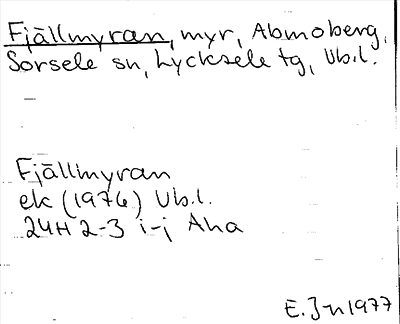 Fjällmyran, myr, Abmoberg,
Sorsele sn, Lycksele tg, Vb.l.
Fjällmyran
ek (1976) Vb.l.
24H 2-3 i-j Aha
E. Jn 1977